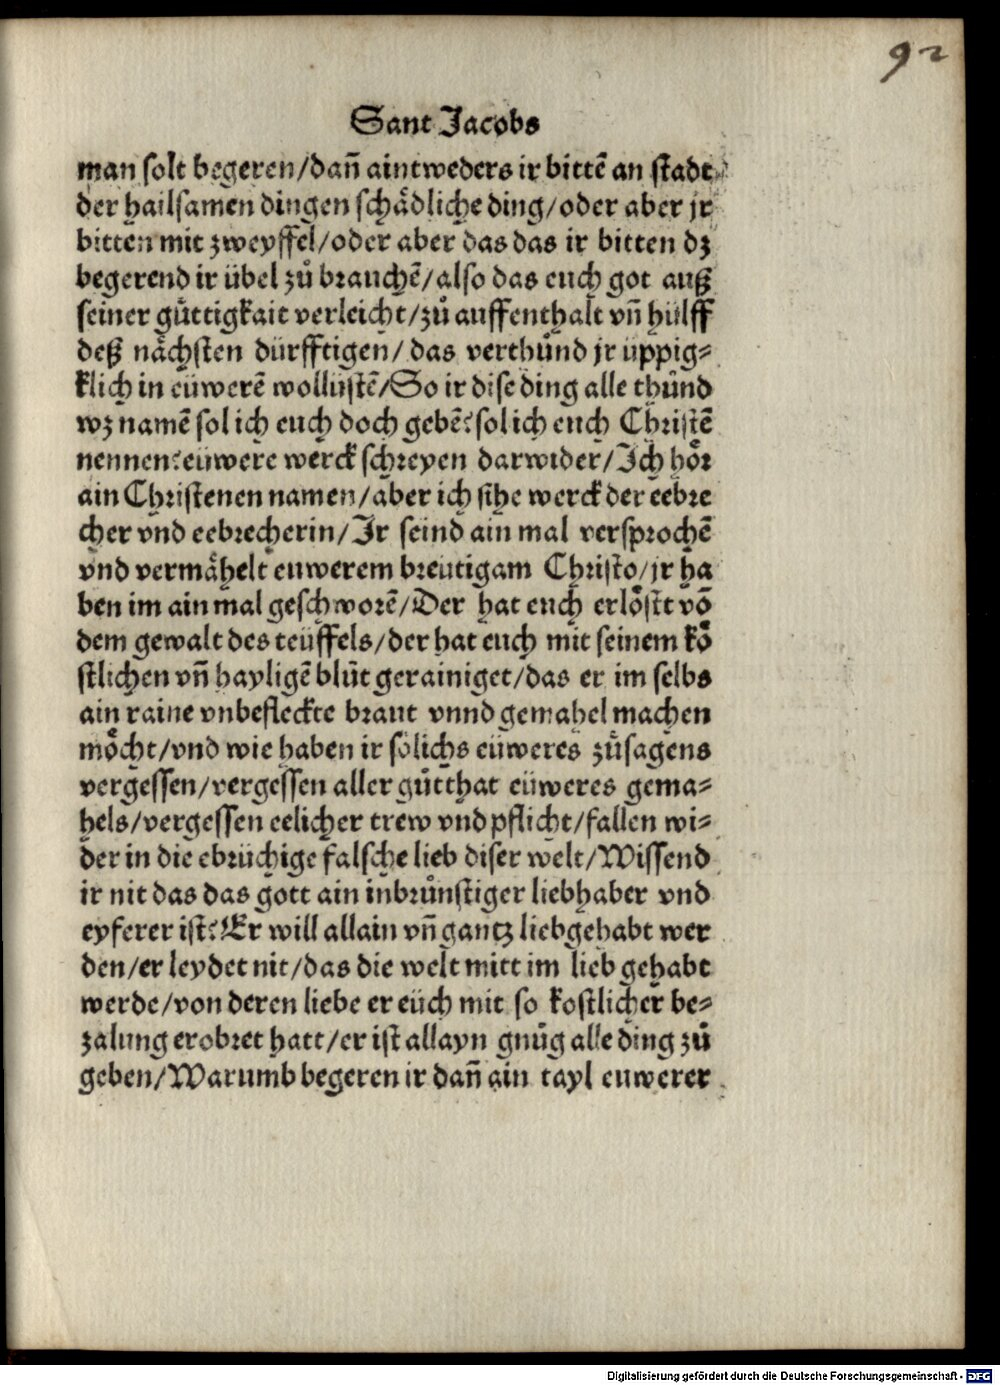 92
Sant Jacobs
man solt begeren/dañ aintweders ir bittẽ an stadt
der hailsamen dingen schådliche ding/oder aber jr
bitten mit zweyffel/oder aber das das ir bitten dz
begerend ir übel zů brauchẽ/also das euch got auß
seiner gůttigkait verleicht/zů auffenthalt vñ hülff
deß nåchsten dürfftigen/das verthůnd jr üppig⸗
klich in eüwerẽ wollüstẽ/So ir dise ding alle thůnd
wz namẽ sol ich euch doch gebẽ? sol ich euch Christẽ
nennen? eüwere werck schreyen darwider/Jch hoͤr
ain Christenen namen/aber ich sihe werck der eebre
cher vnd eebrecherin/Jr seind ain mal versprochẽ
vnd vermåhelt euwerem breutigam Christo/jr ha
ben im ain mal geschworẽ/Der hat euch erloͤßt võ
dem gewalt des teüffels/der hat euch mit seinem koͤ
stlichen vñ hayligẽ blůt gerainiget/das er im selbs
ain raine vnbefleckte braut vnnd gemahel machen
moͤcht/vnd wie haben ir soͤlichs eüweres zůsagens
vergessen/vergessen aller gůtthat eüweres gema⸗
hels/vergessen eelicher trew vnd pflicht/fallen wi⸗
der in die ebrüchige falsche lieb diser welt/Wissend
ir nit das das gott ain inbrůnstiger liebhaber vnd
eyferer ist? Er will allain vñ gantz liebgehabt wer
den/er leydet nit/das die welt mitt im lieb gehabt
werde/von deren liebe er eüch mit so kostlicher be⸗
zalung erobret hatt/er ist allayn gnůg alle ding zů
geben/Warumb begeren ir dañ ain tayl euwerer
Digitalisierung gefördert durch die Deutsche Forschungsgemeinschaft - DFG